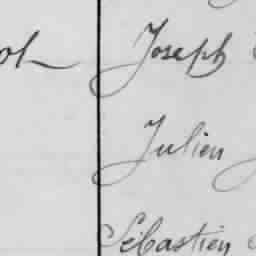 Joseph
Julien
Sébastien